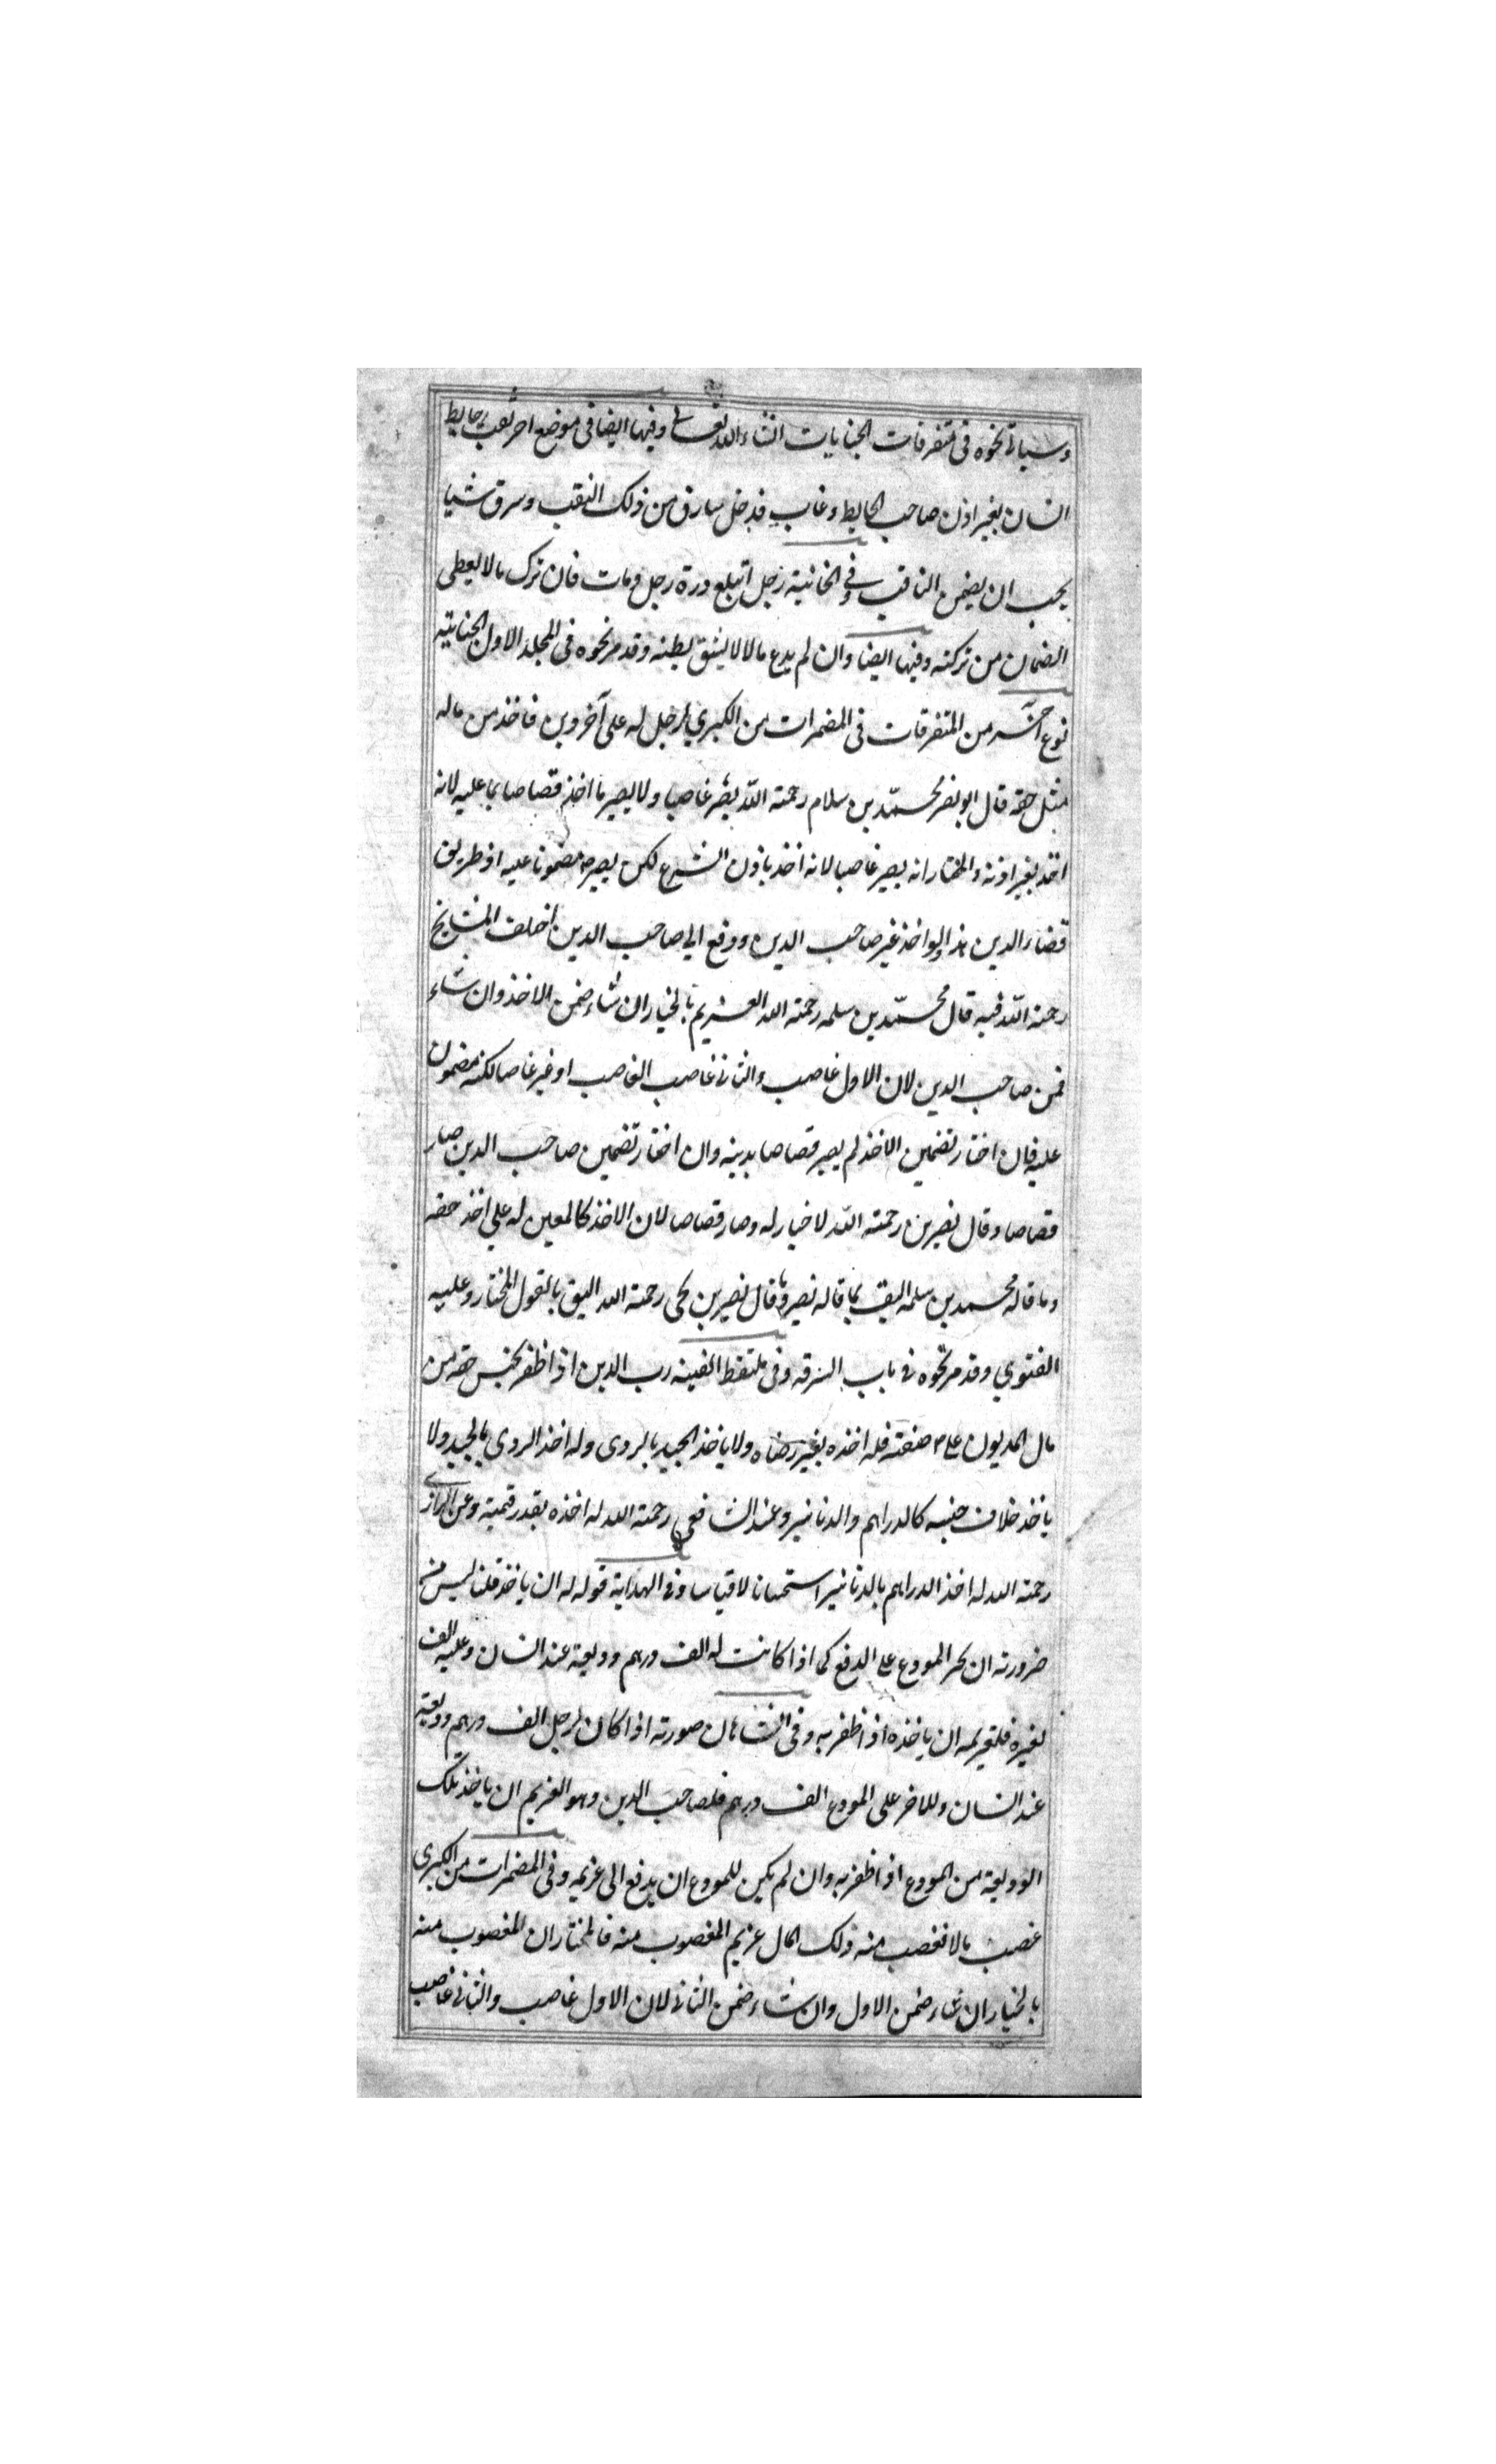 وسياتي نحوه في متفرقات الجنايات انشاء الله تعالى وفيها ايضا في موضع اخر نقب حايط
انسان بغير اذن صاحب الحايط وغاب فدخل سارق من ذلك النقب وسرق شيا
يجب ان يضمن الناقب وفي الخانية رجل ابتلع درة رجل ومات فان ترك مالا يعطى
الضمان من تركته وفيها ايضا وان لم يدع مالا لا يشق بطنه وقد مر نحوه في المجلد الاول الجنايته
نوع آخر من المتفرقات في المضمرات من الكبري رجل له على آخر دين فاخذ من ماله
مثل حقه قال ابو نصر محمد بن سلام رحمته الله يصير غاصبا ولا يصير ما اخذ قصاصا بما عليه لانه
اخذ بغير اذنه والمختار انه يصير غاصبا لانه اخذ باذن الشرع لكن يصير مضمونا عليه اذ طريق
قضاء الدين هذا ولو اخذ غير صاحب الدين ودفع الي صاحب الدين اختلف المشايخ
رحمته الله فيه قال محمد بن سلمه رحمته الله الغريم بالخيار ان شاء ضمن الاخذ وان شاء
ضمن صاحب الدين لان الاول غاصب والثاني غاصب الغاصب او غير غاصب لكنه مضمون
عليه فان اختار تضمين الاخذ لم يصير قصاصا بدينه وان اختار تضمين صاحب الدين صار
قصاصا وقال نصير بن رحمته الله لا خيار له وصار قصاصا لان الاخذ كالمعين له علي اخذ حقه
وما قاله محمد بن سلمه اليق بما قاله نصير وما قال نصير بن يحيى رحمته الله اليق بالقول المختار وعليه
الفتوي وقد مر نحوه في باب السرقه وفي ملتقط القنيه رب الدين اذا ظفر بجنس حقه من
مال المديون على صفته فله اخذه بغير رضاه ولا ياخذ الجيد بالردى وله اخذ الردى بالجيد ولا
ياخذ خلاف جنسه كالدراهم والدنانير وعند الشافعي رحمته الله له اخذه بقدر قيمته وعن الرازي
رحمته الله له اخذ الدراهم بالدنانير استحسانا لا قياسا وفي الهداية قوله له ان ياخذ قلنا ليس من
ضرورته ان يجبر المودع على الدفع كما اذا كانت له الف درهم وديعة عند انسان وعليه الف
لغيره فلغريمه ان ياخذه اذا ظفر به وفي الشاهان صورته اذا كان لرجل الف درهم وديعة
عند انسان وللاخر على المودع الف درهم فلصاحب الدين وهو الغريم ان ياخذ تلك
الوديعة من المودع اذا ظفر به وان لم يكن للمودع ان يدفع الى غريمه وفي المضمرات من الكبرى
غصب مالا فغصب منه ذلك المال غريم المغصوب منه فالمختار ان المغصوب منه
بالخيار ان شاء ضمن الاول وان شاء ضمن الثاني لان الاول غاصب والثاني غاصب